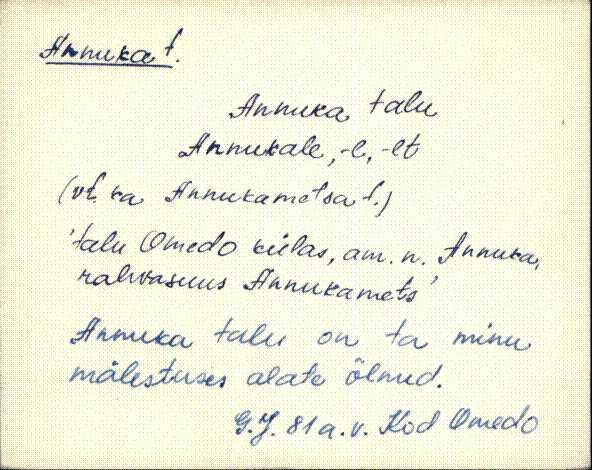 Annuka t.
Annuka talu
Annukale, -l, -lt
(vt. ka Annukametsa t.)
'talu Omedo külas, am. n. Annuka,
rahvasuus Annukamets'
Annuka talu on ta minu
mälestuses alate õlnud.
G.J. 81 a. v. Kod Omedo